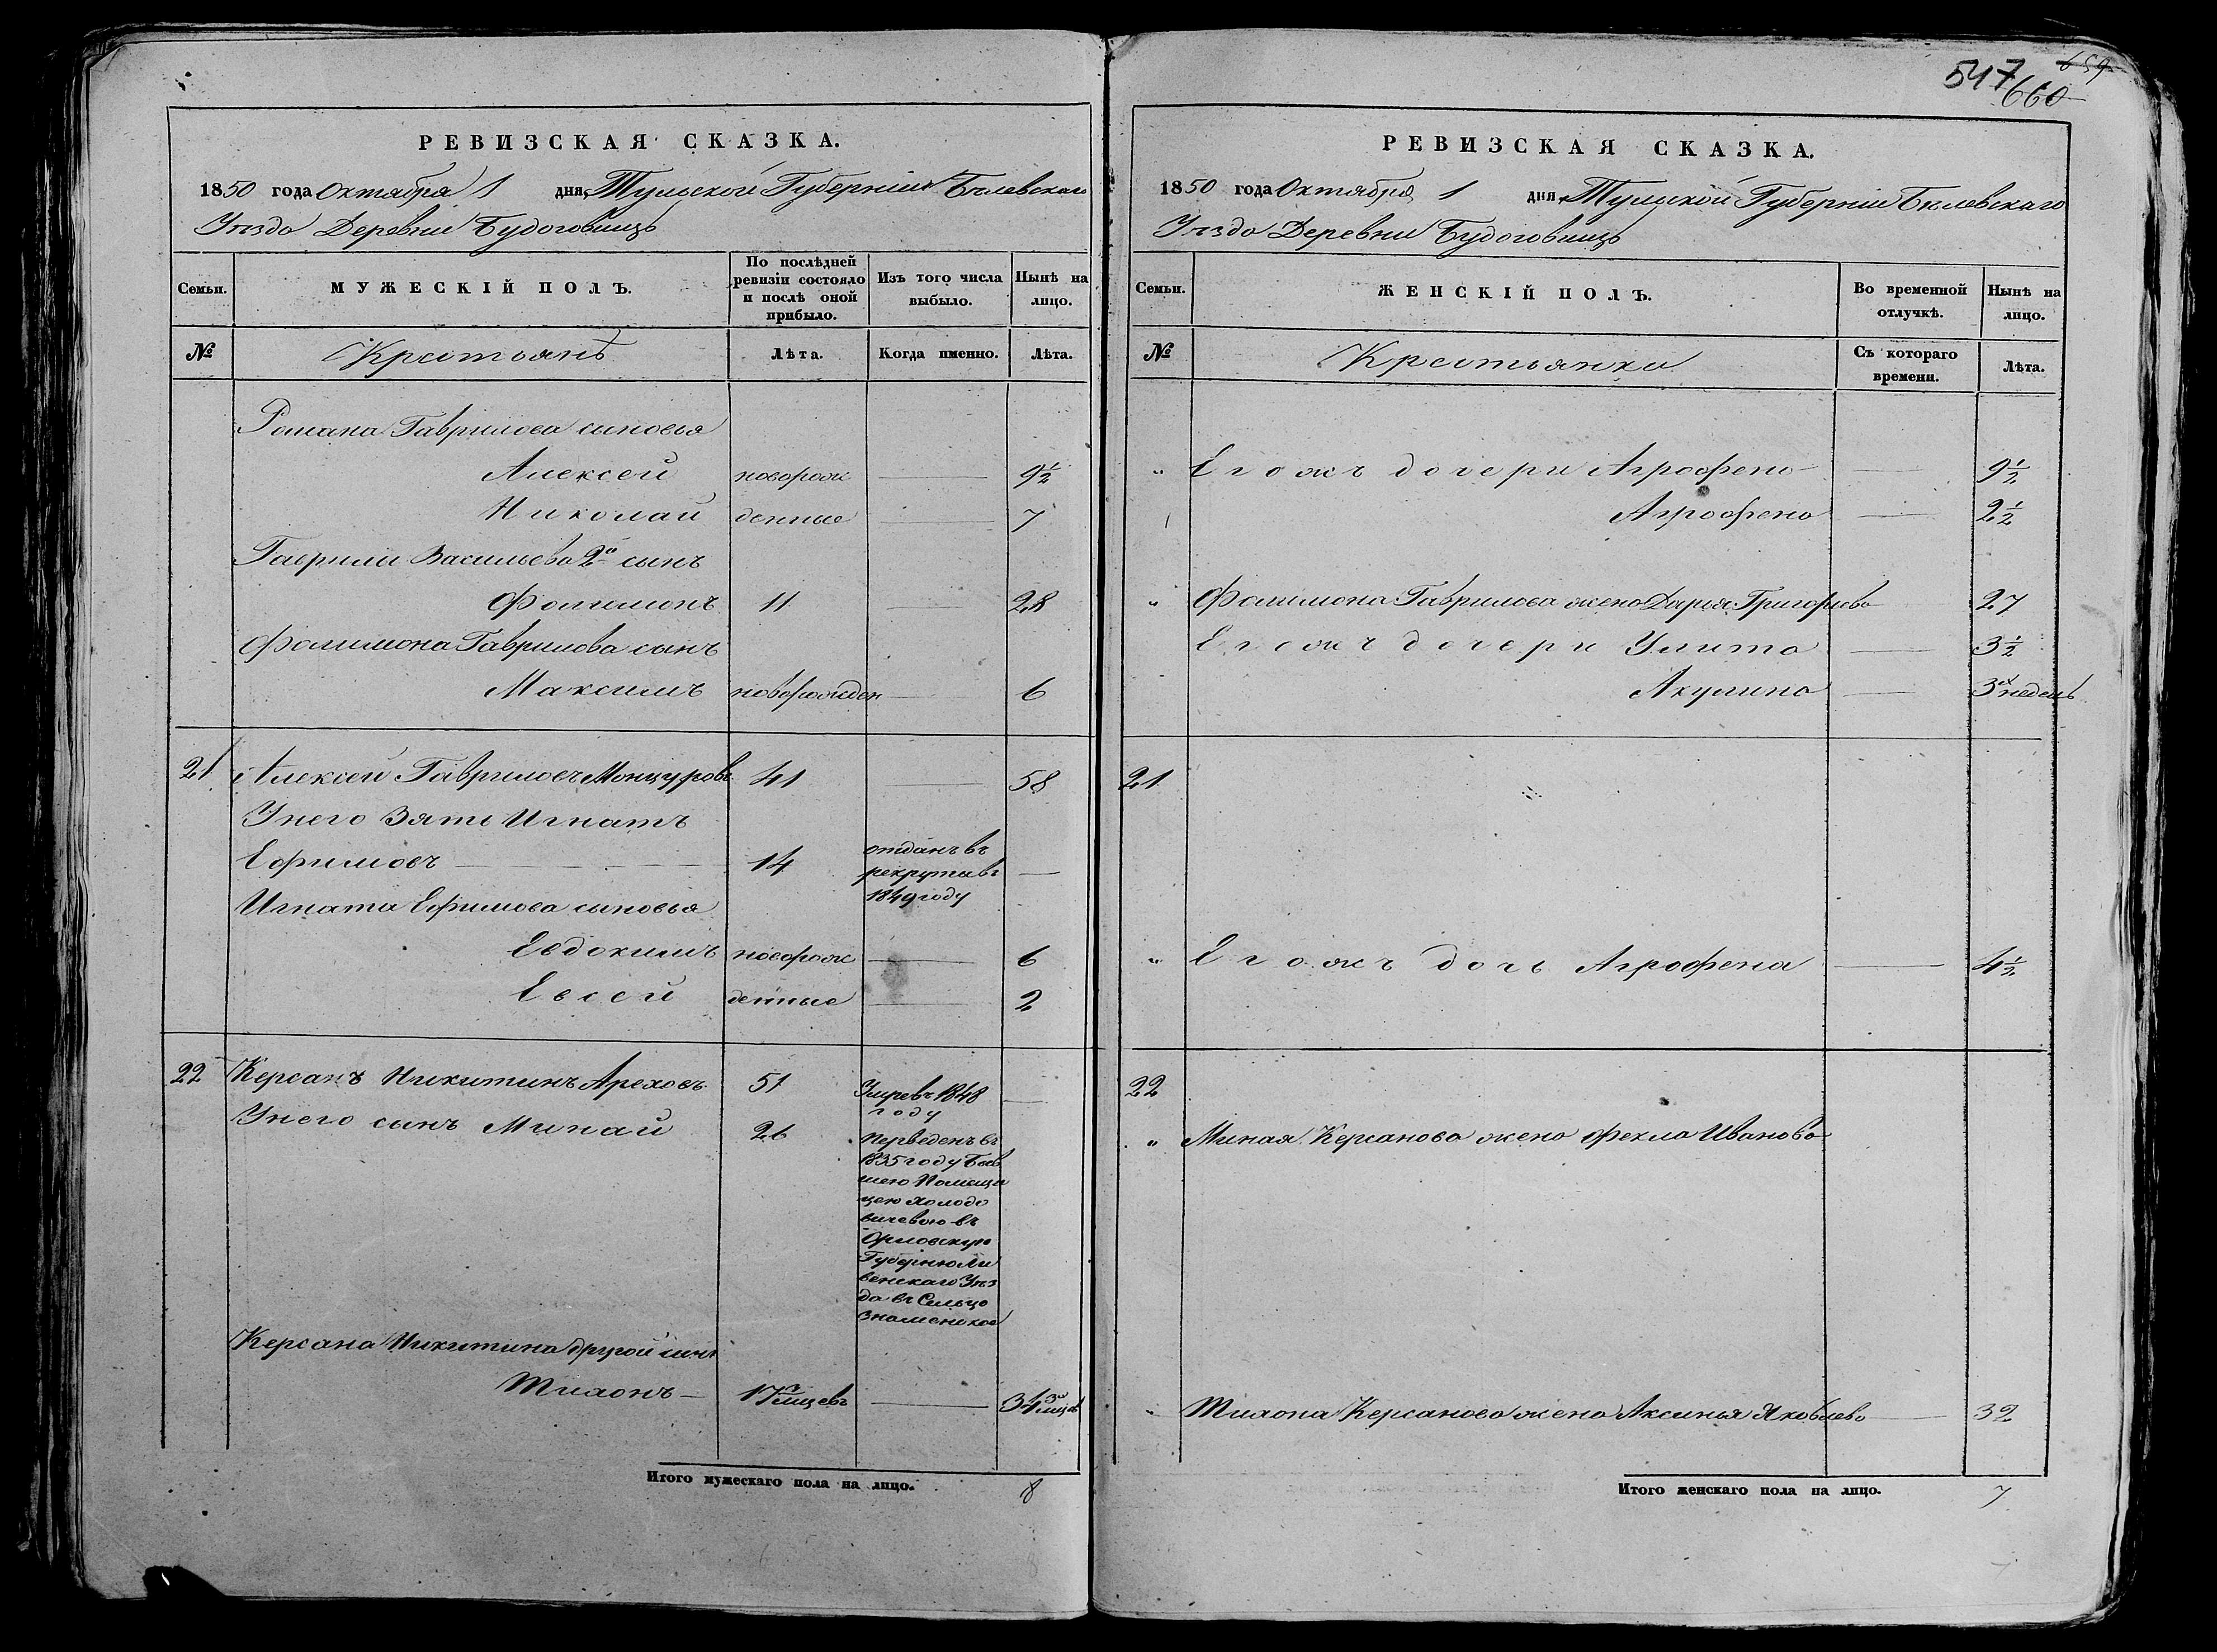 547 659
660
РЕВИЗСКАЯ СКАЗКА.
1850 года Октября 1 дня, Тульской Губернiи Бѣлевскаго
Уѣзда Деревни Будоговищъ
Семьи.
МУЖЕСКIЙ ПОЛЪ.
По послѣдней ревизiи состояло и послѣ оной прибыло.
Изъ того числа выбыло.
Нынѣ на лицо.
№
Крестьянъ
Лѣта.
Когда именно.
Лѣта.
Романа Гаврилова сыновья
Алексей новорож 9½
Николай денные 7
Гаврилы Васильева 2й сынъ
Фолимонъ 11 28
Фолимона Гаврилова сынъ
Максимъ новорожден 6
21 Алексей Гавриловъ Монцуровъ 41 58
У него Зять Игнатъ
Ефимовъ 14 отданъ въ рекруты въ 1849 году
Игната Ефимова сыновья
Евдокимъ новорож 6
Евсей денные 2
22 Керсанъ Никитинъ Ареховъ 51 Умре въ 1848 году
У него сынъ Минай 26 Переведенъ въ
1835 году Быв
шею Помещи
цею Холодо
вичевою въ
Орловскую
Губернiю Ли
венскаго Уѣз
да въ Сельцо
Знаменское
Керсана Никитина другой сынъ
Тихонъ 17 3 мцсвъ 34 3 мцсв
Итого мужескаго пола на лицо. 8
РЕВИЗСКАЯ СКАЗКА.
1850 года Октября 1 дня, Тульской Губернiи Бѣлевскаго
Уѣзда Деревни Будоговищъ
Семьи.
ЖЕНСКIЙ ПОЛЪ.
Во временной отлучкѣ.
Нынѣ на лицо.
№
Крестьянки
Съ котораго времени.
Лѣта.
" Его жъ дочери Агрофена 9½
Агрофена 2½
" Фолимона Гаврилова жена Дарья Григорьева 27
Его жъ дочери Улита 3½
Акулина 3хъ недель
21
" Его жъ дочь Агрофена 4½
22
" Миная Керсанова жена Фекла Иванова
" Тихона Керсанова жена Аксинья Яковлева 32
Итого женскаго пола на лицо. 7